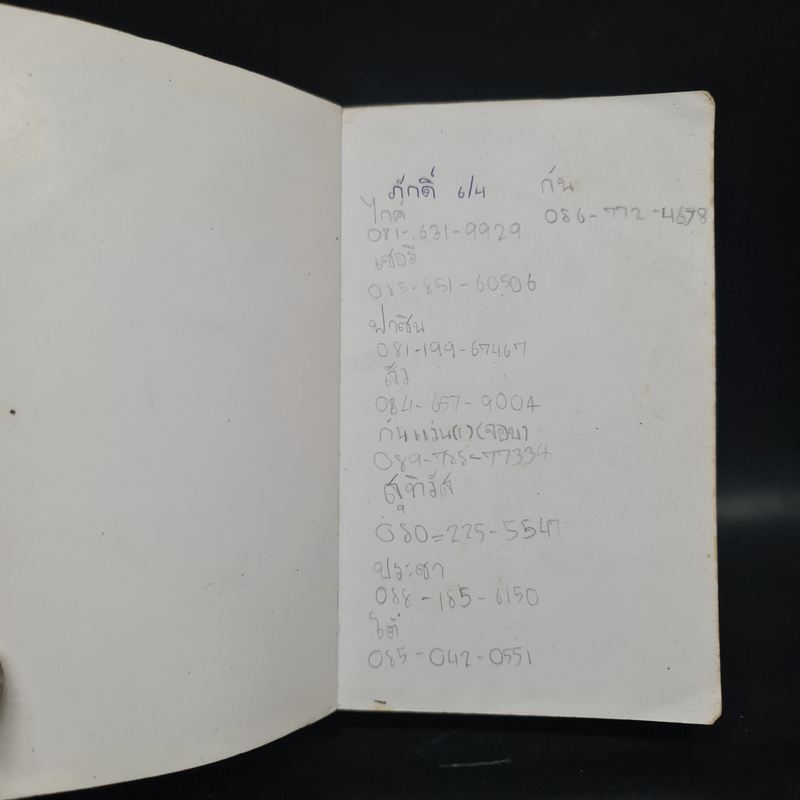 ภักดิ์ 6/4
กัน
086-772-4678
ไกด์
081-631-9929
เชอรี่
085-851-60506
ฟาซิน
081-199-67467
สัว
084-657-9004
กันแว่น(1)(จอบ)
089-785-77334
สุทิวัส
080=225-5547
ประชา
088-185-6150
ไต๋
085-042-0551